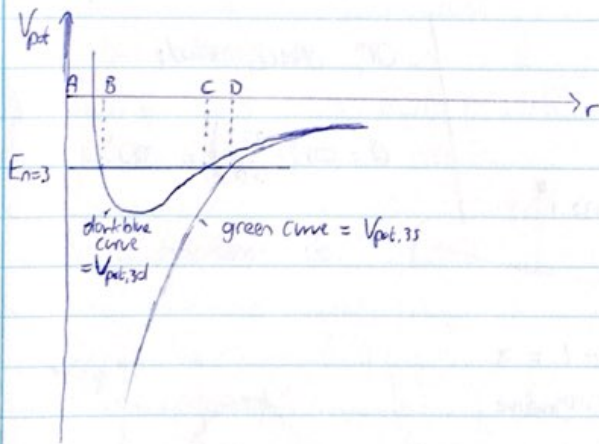 V_pot
A B C D
r
E_n=3
dark blue
curve
= V_pot,3d
green curve = V_pot,3s